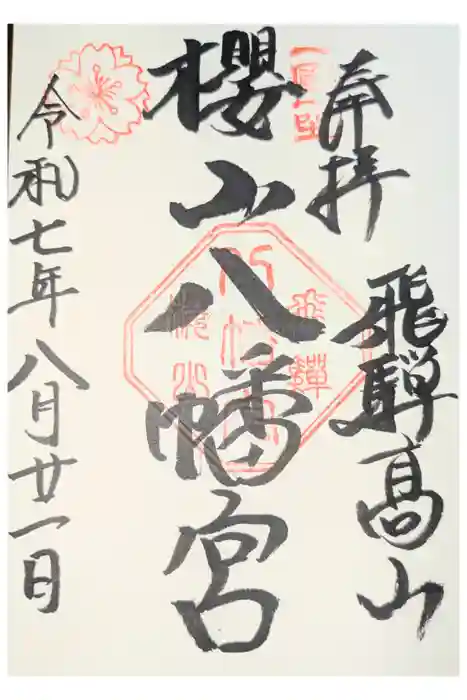 奉拝
飛騨高山
櫻山八幡宮
令和七年八月廿一日